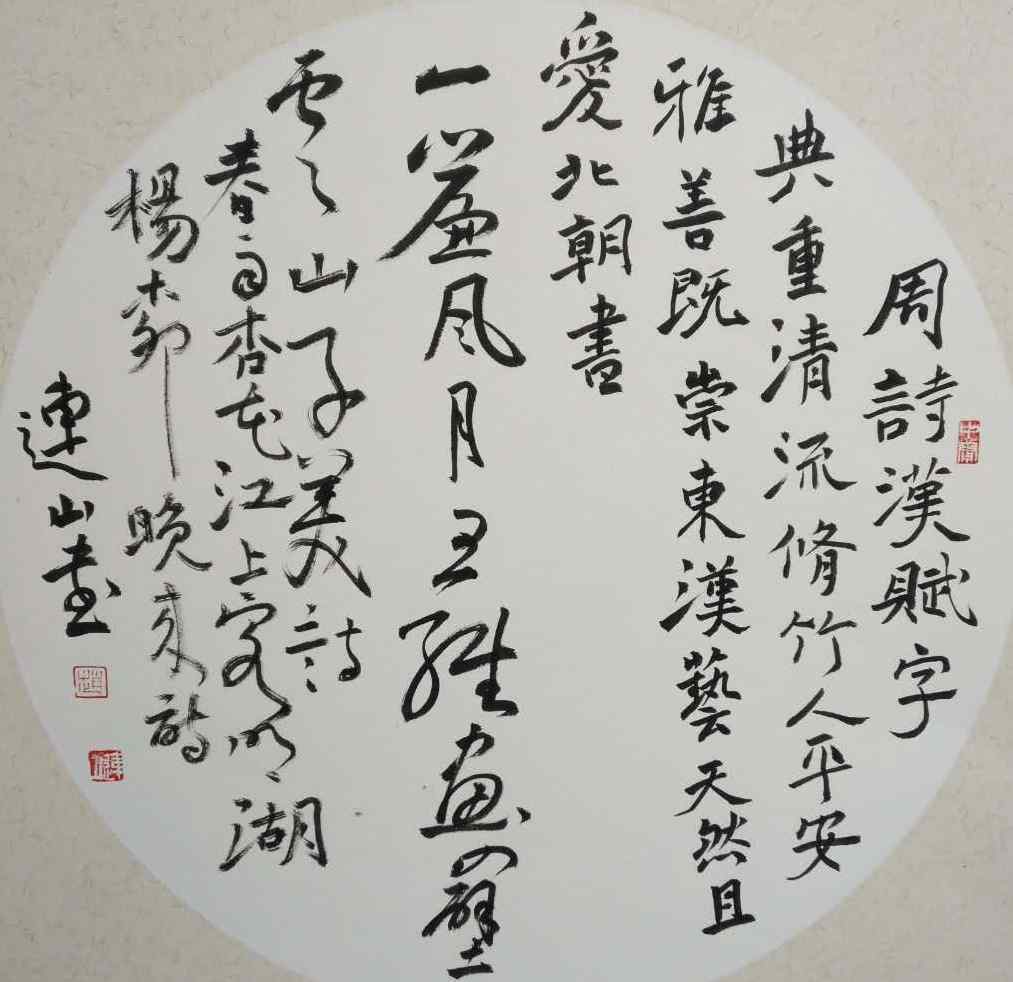 周詩漢賦字
典重清流脩竹人平安
雅善既崇東漢藝天然且
愛北朝書
一簾风月王維画四壁
雲山子美詩
春雨杏花江上客明湖
楊柳晚来詩
連山書